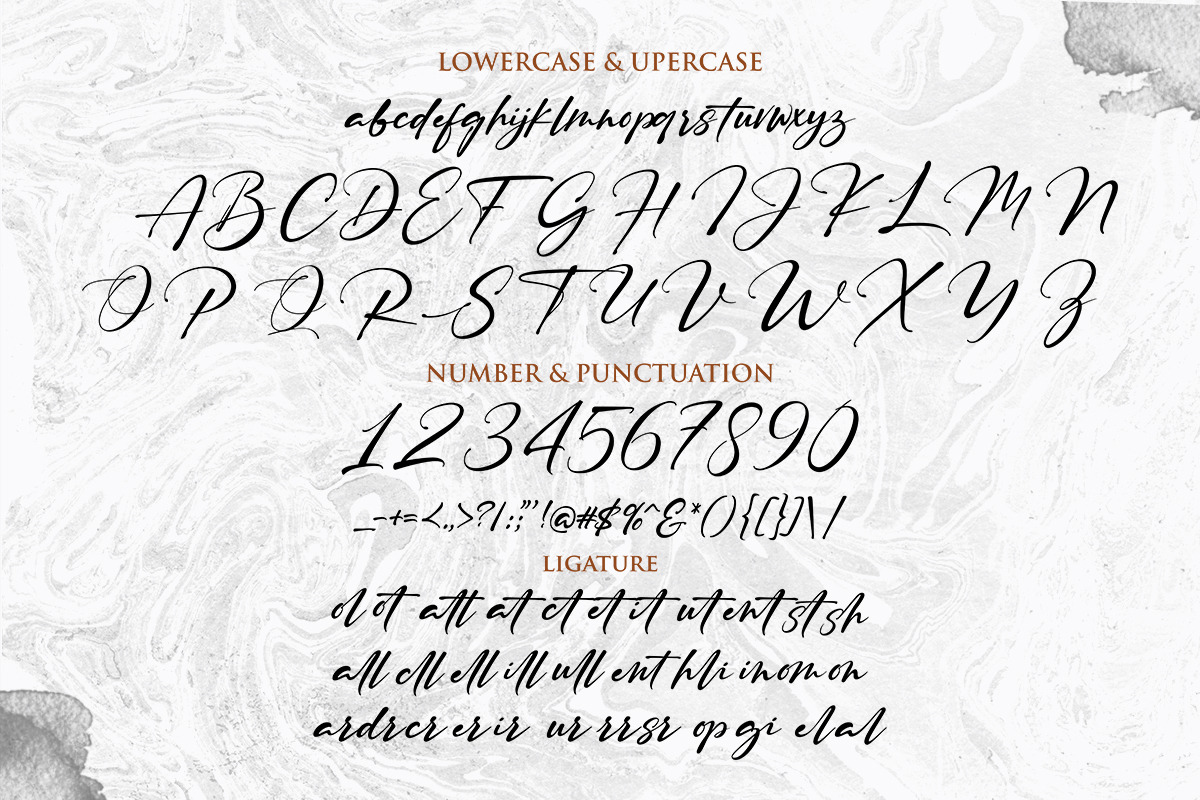 LOWERCASE & UPERCASE
abcdefghijklmnopqrstuvwxyz
A B C D E F G H I J K L M N
O P Q R S T U V W X Y Z
NUMBER & PUNCTUATION
1234567890
_-+=<.,>?/:;"'!@#$%^&*(){[}]\|
LIGATURE
ol ot att at ct et it ut ent st sh
all cll ell ill ull ent hli in om on
ar dr cr er ir ur rr sr op gi el al